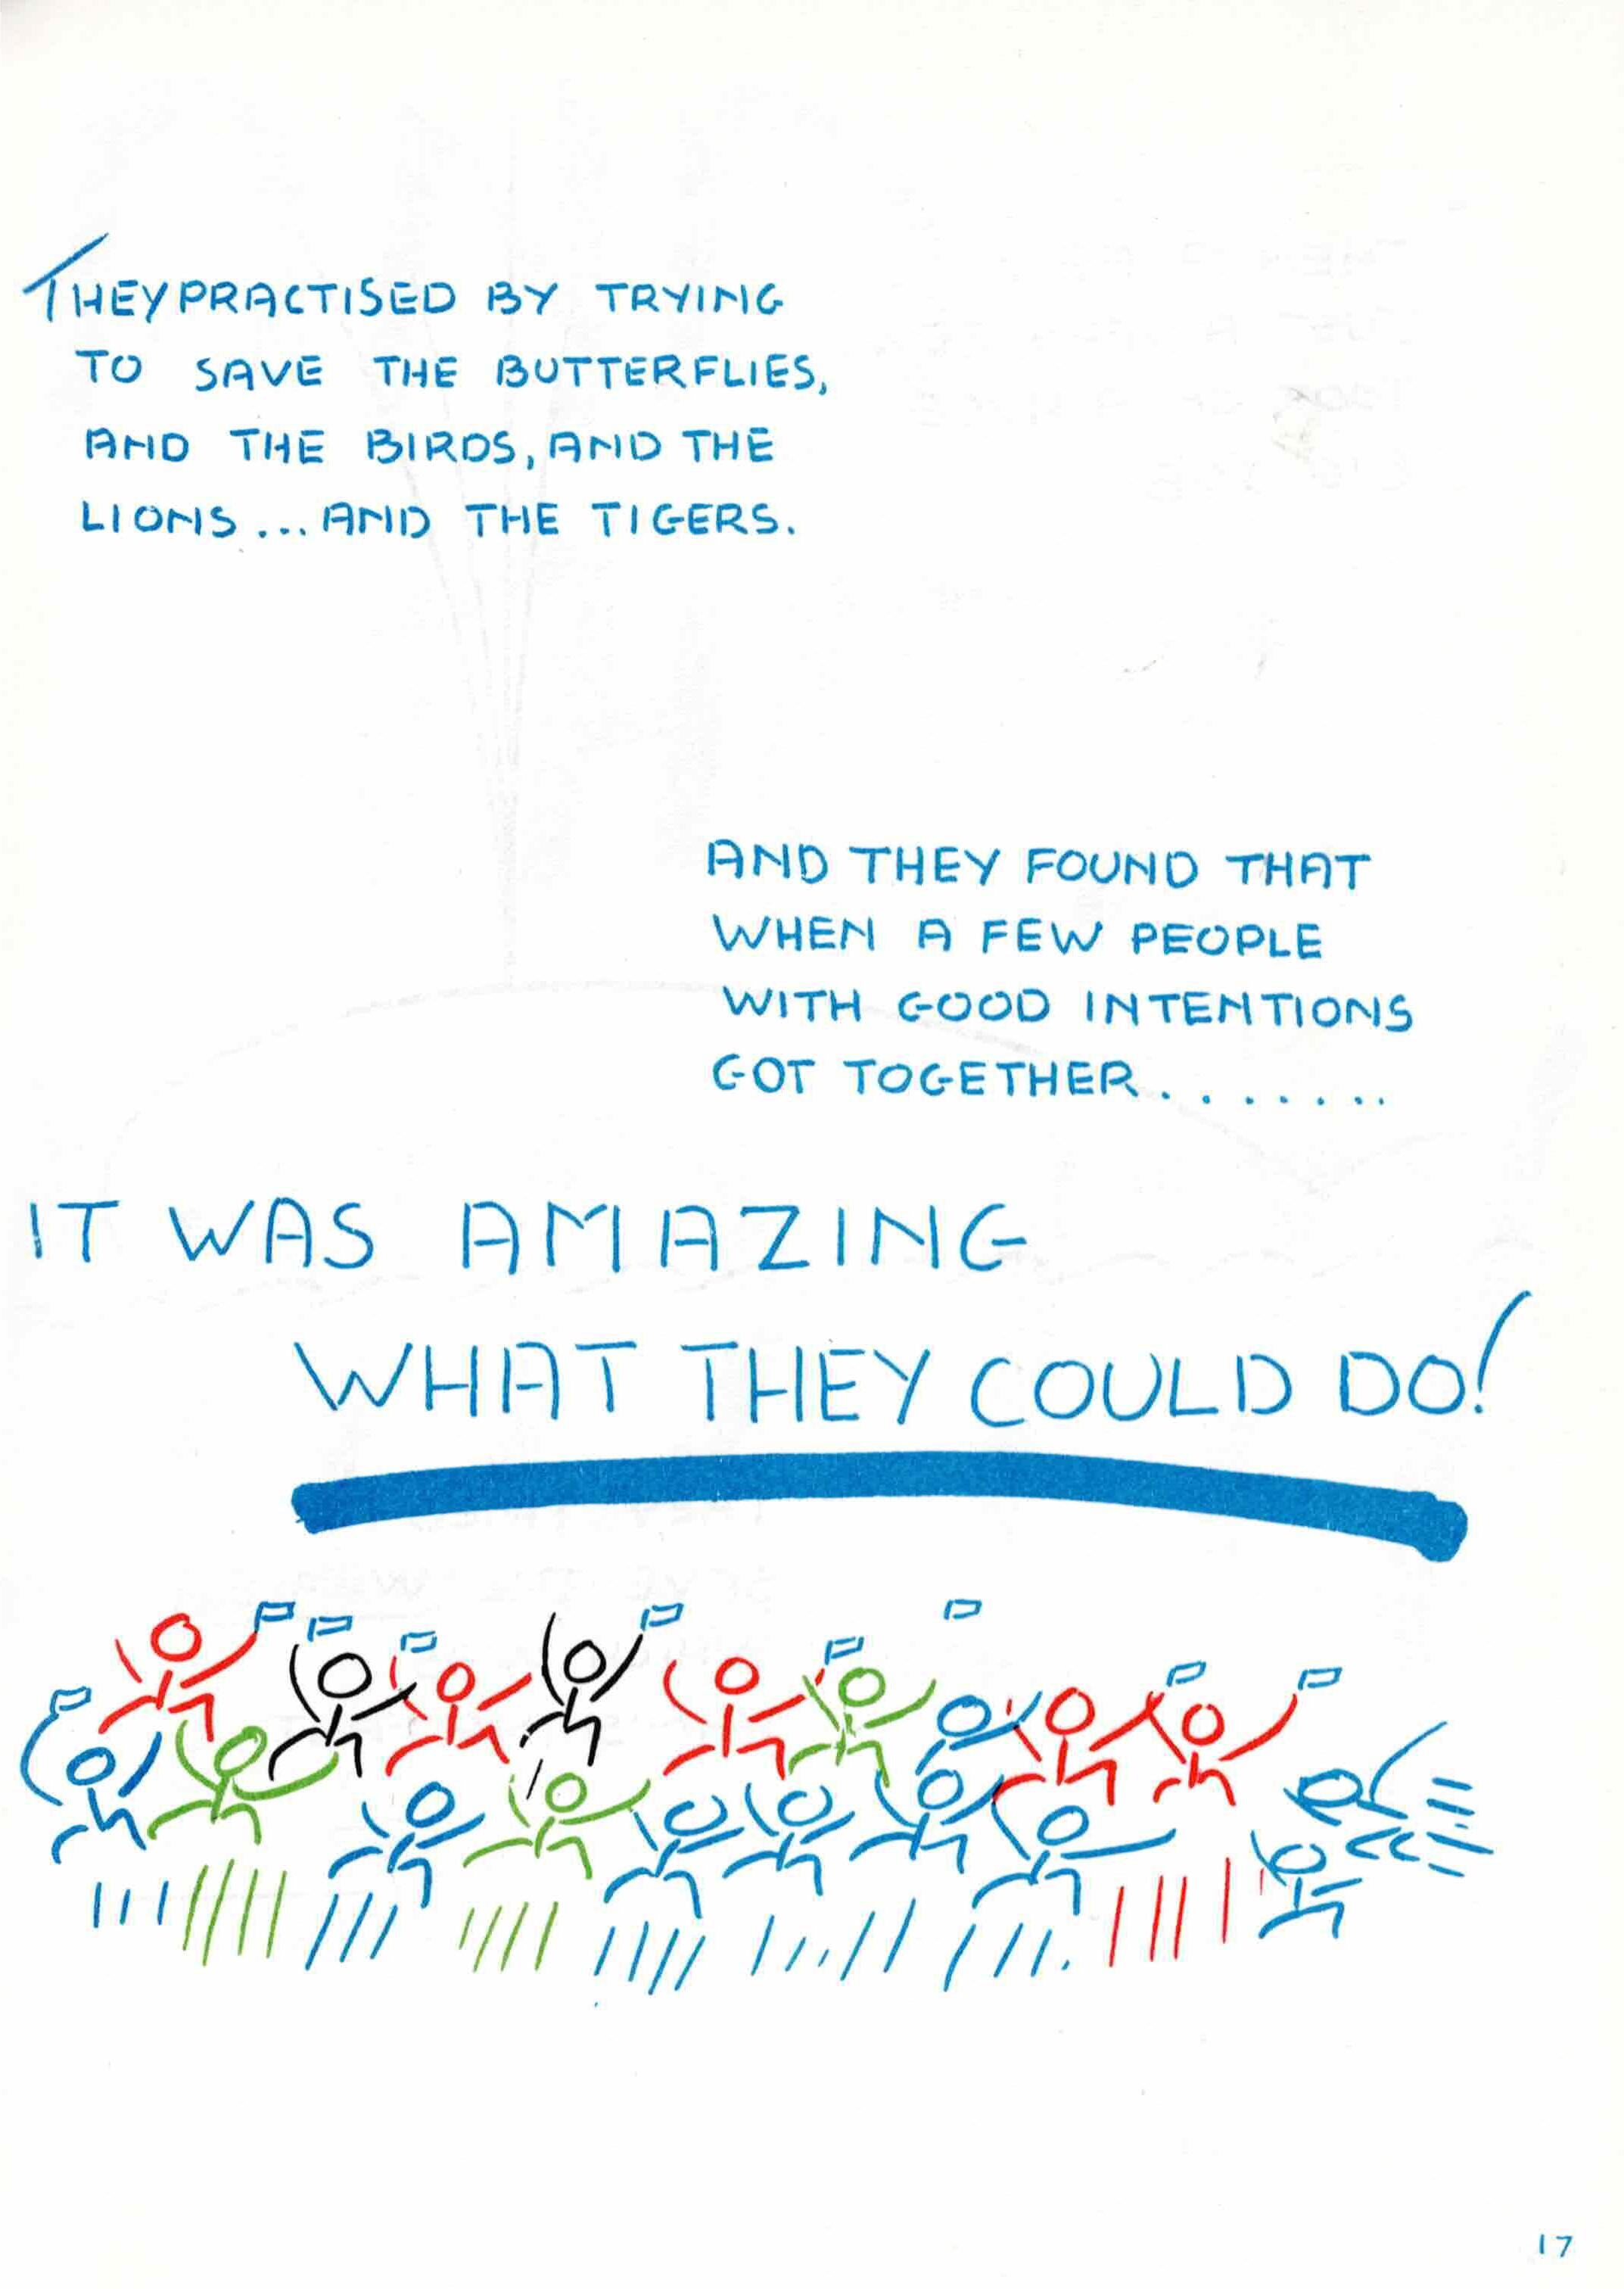 THEY PRACTISED BY TRYING
TO SAVE THE BUTTERFLIES,
AND THE BIRDS, AND THE
LIONS... AND THE TIGERS.
AND THEY FOUND THAT
WHEN A FEW PEOPLE
WITH GOOD INTENTIONS
GOT TOGETHER........
IT WAS AMAZING
WHAT THEY COULD DO!
17